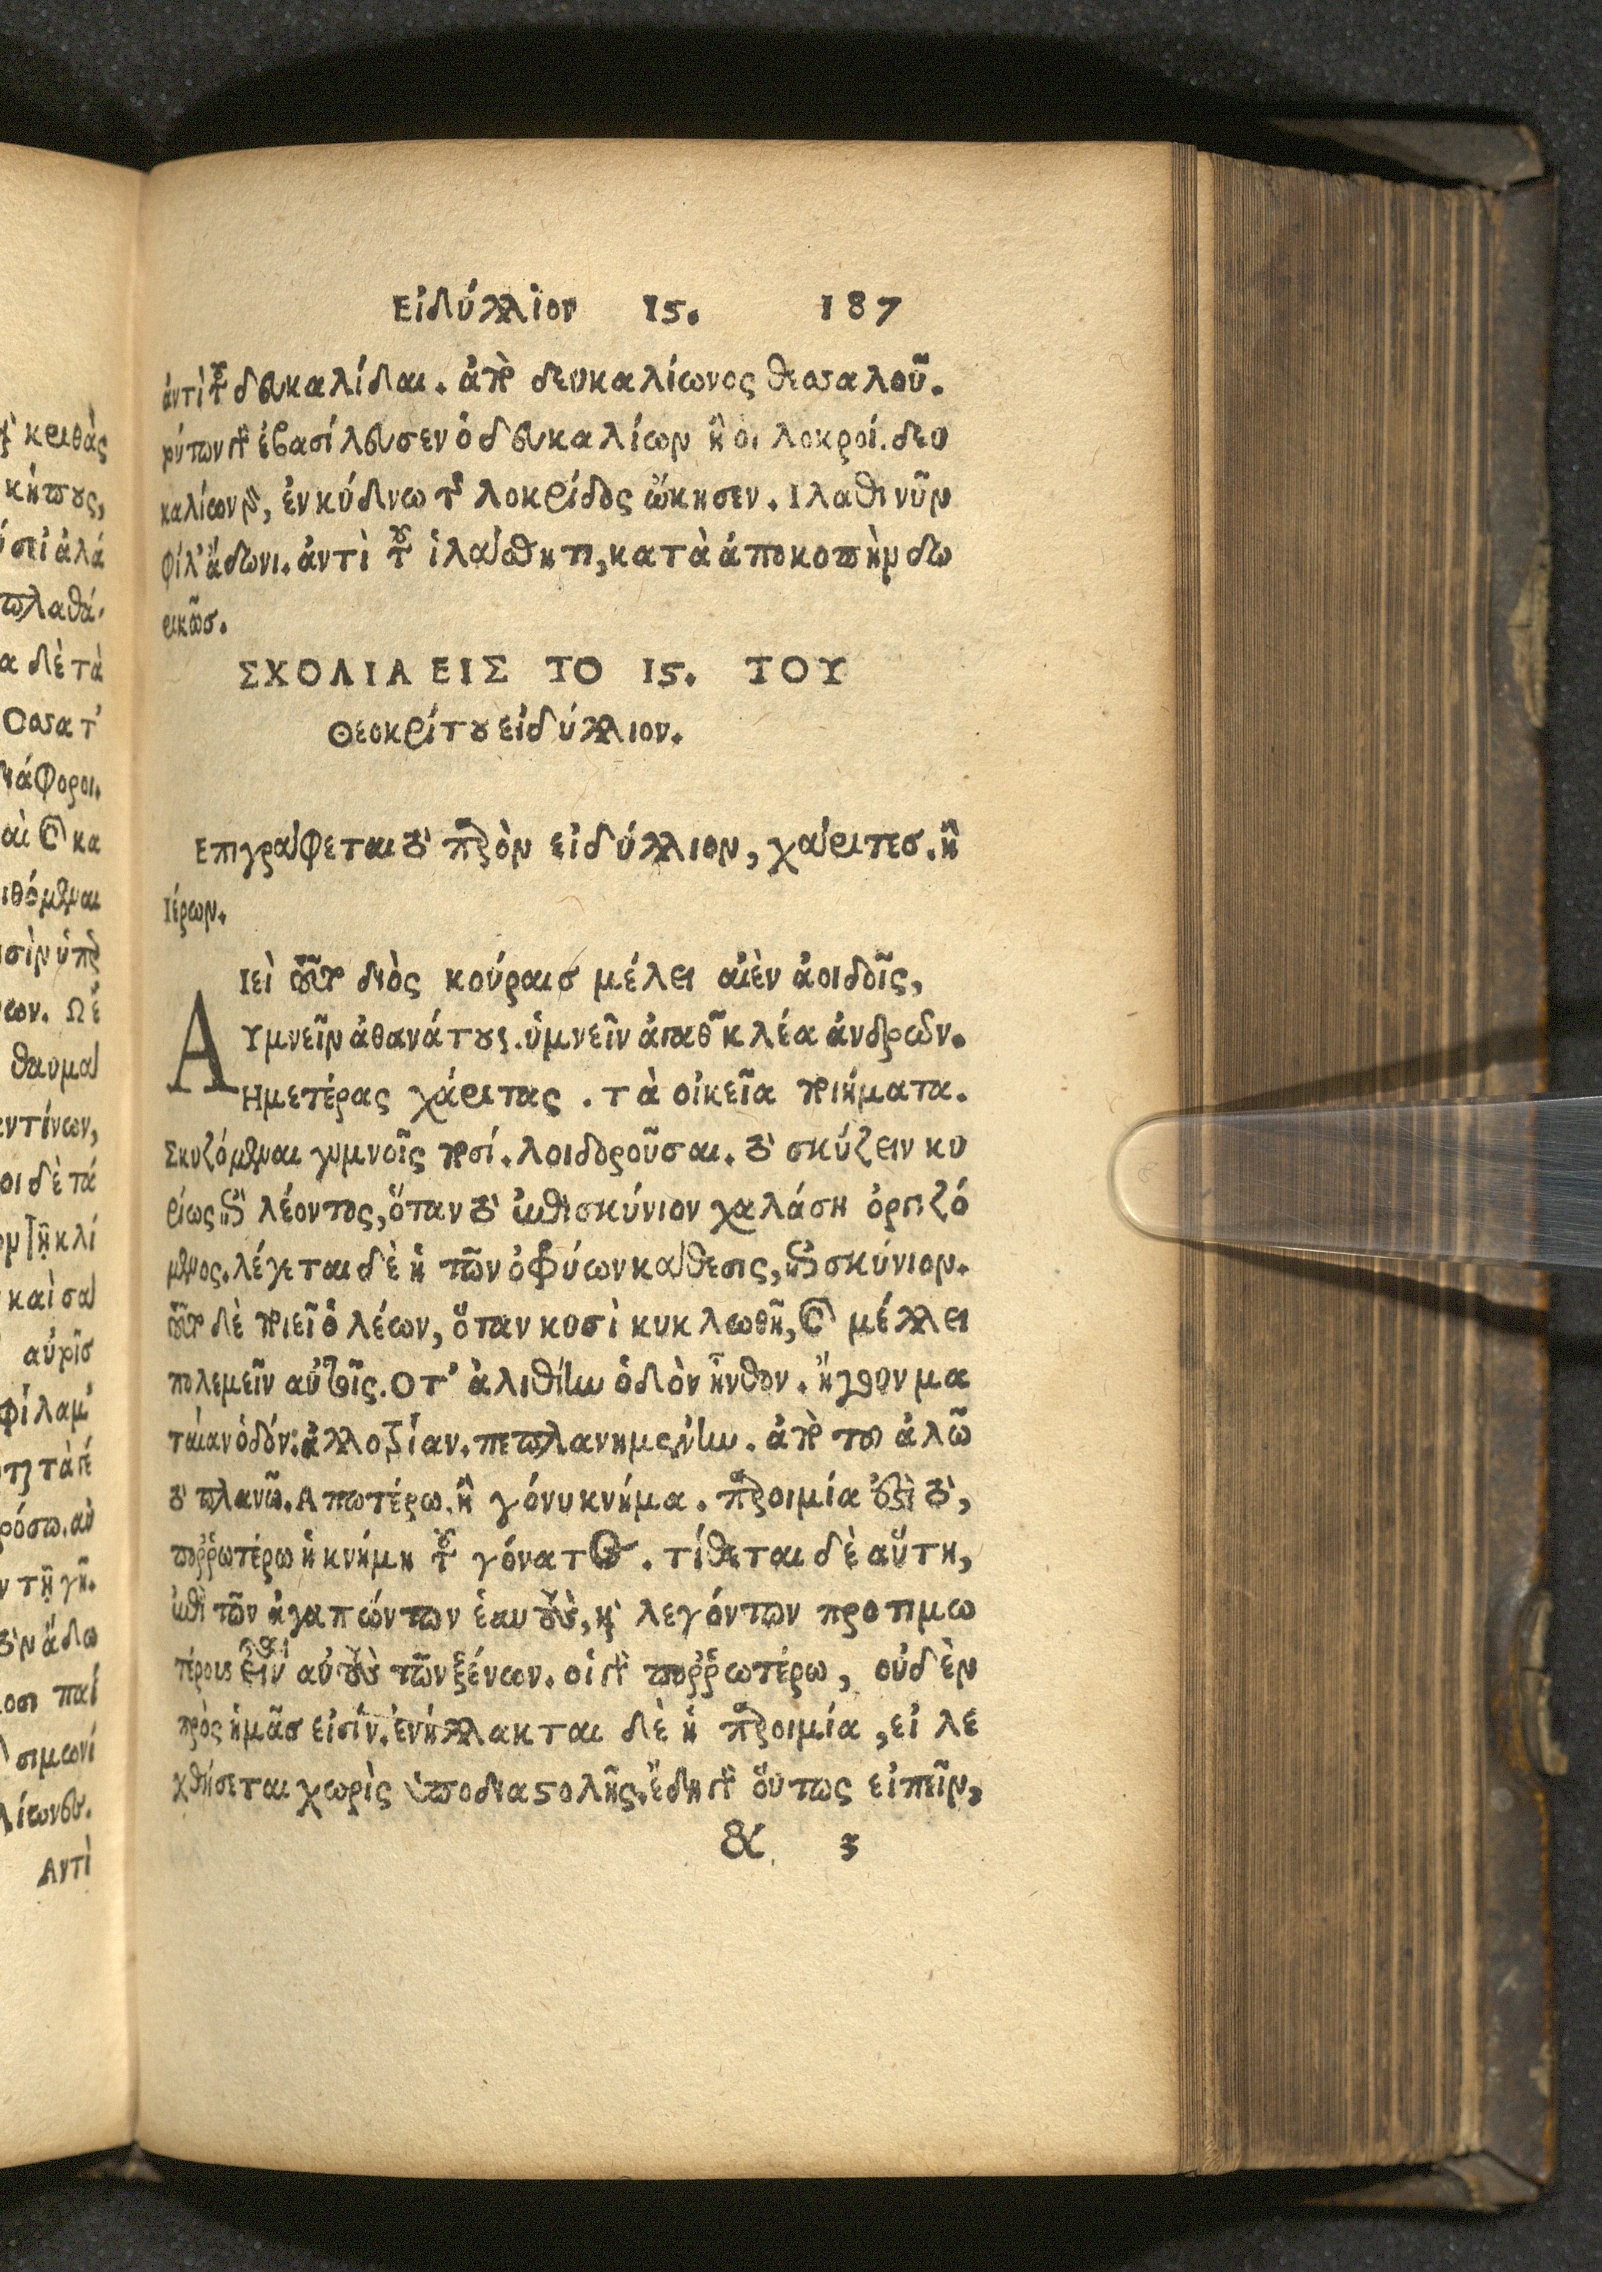 Εἰδύλλιον 15. 187
ἀντὶ τοῦ δευκαλίδαι. ἀπὸ δευκαλίωνος θεσσαλοῦ.
τούτων γὰρ ἐβασίλευσεν ὁ δευκαλίων ἢ οἱ λοκροί. δευ
καλίων γὰρ, ἐν κύδνω τῆς λοκρίδος ᾤκησεν. Ιλαθι νῦν
φίλ' ἄδωνι. ἀντὶ τοῦ ἱλάσθητι, κατὰ ἀποκοπὴν δω
ρικῶσ.
ΣΧΟΛΙΑ ΕΙΣ ΤΟ 15. ΤΟΥ
Θεοκρίτου εἰδύλλιον.
Επιγράφεται τὸ παρὸν εἰδύλλιον, χάριτεσ. ἢ
Ιέρων.
ΑΙεὶ τοῦτο διὸς κούραισ μέλει αἰὲν ἀοιδοῖς,
Υμνεῖν ἀθανάτους. ὑμνεῖν ἀγαθῶν κλέα ἀνδρῶν.
Ημετέρας χάριτας. τὰ οἰκεῖα ποιήματα.
Σκυζόμεναι γυμνοῖς ποσί. λοιδοροῦσαι. τὸ σκύζειν κυ
ρίως ἐπὶ λέοντος, ὅταν τὸ ἐπισκύνιον χαλάση ὀργιζό
μενος. λέγεται δὲ ἡ τῶν ὀφρύων κάθεσις, ἐπισκύνιον.
τοῦτο δὲ ποιεῖ ὁ λέων, ὅταν κυσὶ κυκλωθῆ, καὶ μέλλει
πολεμεῖν αὐτοῖς. Οτ' ἀλιθίην ὁδὸν ἦνθον. ἤλθον μα
ταίαν ὁδόν. ἀλλοτρίαν. πεπλανημένην. ἀπὸ τοῦ ἀλῶ
τὸ πλανῶ. Απωτέρω. ἢ γόνυ κνήμα. παροιμία ἐστὶ τὸ,
πορρωτέρω ἡ κνήμη τοῦ γόνατος. τίθεται δὲ αὕτη,
ἐπὶ τῶν ἀγαπώντων ἑαυτοὺς, καὶ λεγόντων προτιμω
τέρους εἶναι αὐτοὺς τῶν ξένων. οἱ γὰρ πορρωτέρω, οὐδὲν
πρὸς ἡμᾶσ εἰσίν. ἐνήλλακται δὲ ἡ παροιμία, εἰ λε
χθήσεται χωρὶς ὑποδιαστολῆς. ἔδει γὰρ οὕτως εἰπεῖν,
& 3